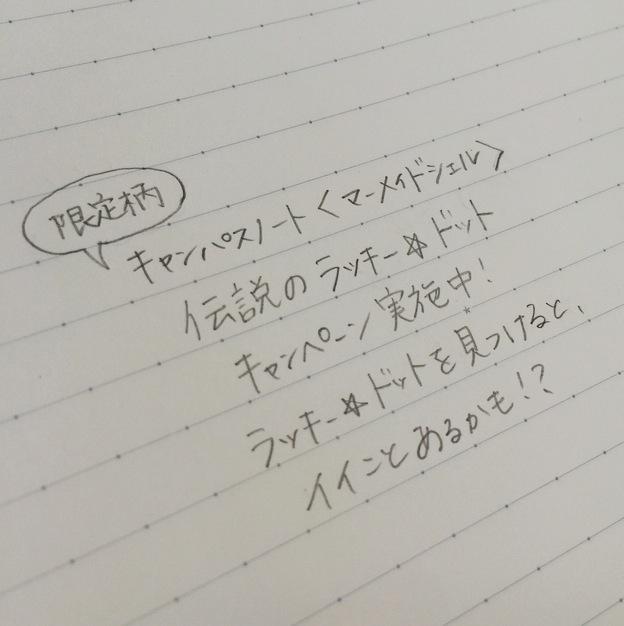 限定柄
キャンパスノート〈マーメイドシェル〉
伝説のラッキー☆ドット
キャンペーン実施中!
ラッキー☆ドットを見つけると、
イイことあるかも!?